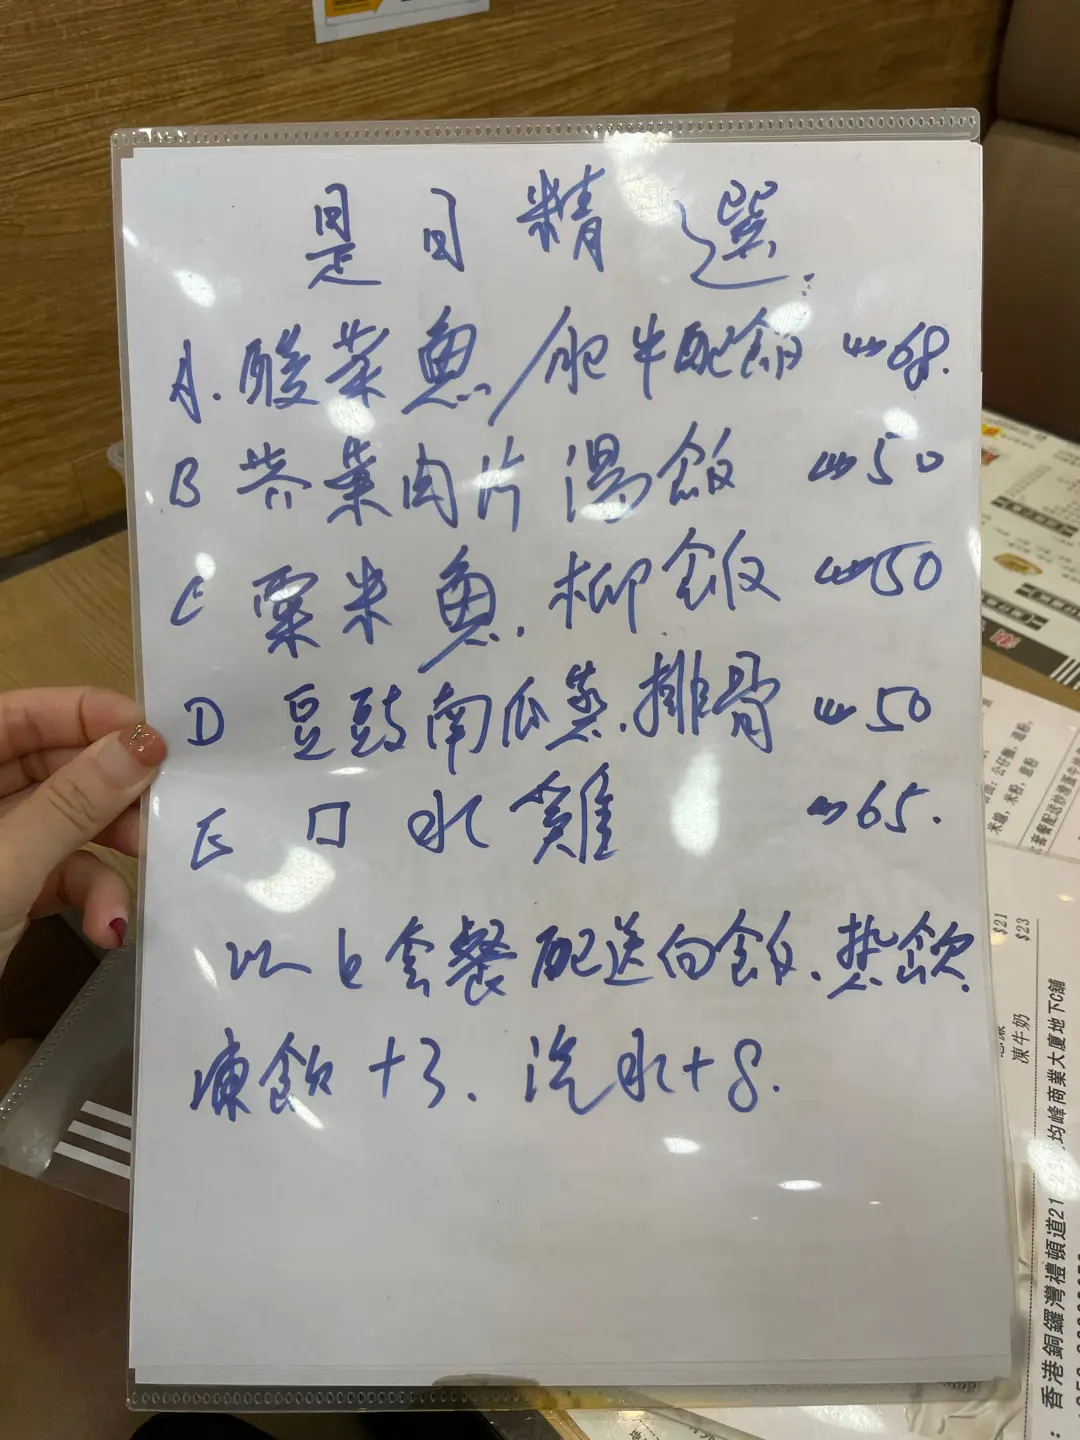 是日精選
A. 酸菜魚/肥牛配飯 68.
B 芥菜肉片湯飯 50
C 粟米魚柳飯 50
D 豆豉南瓜蒸排骨 50
E 口水雞 65.
以上套餐配送白飯.热飲.
凍飲+3. 汽水+8.
$21
$23
凍牛奶
香港銅鑼灣禮頓道21
均峰商業大廈地下C舖